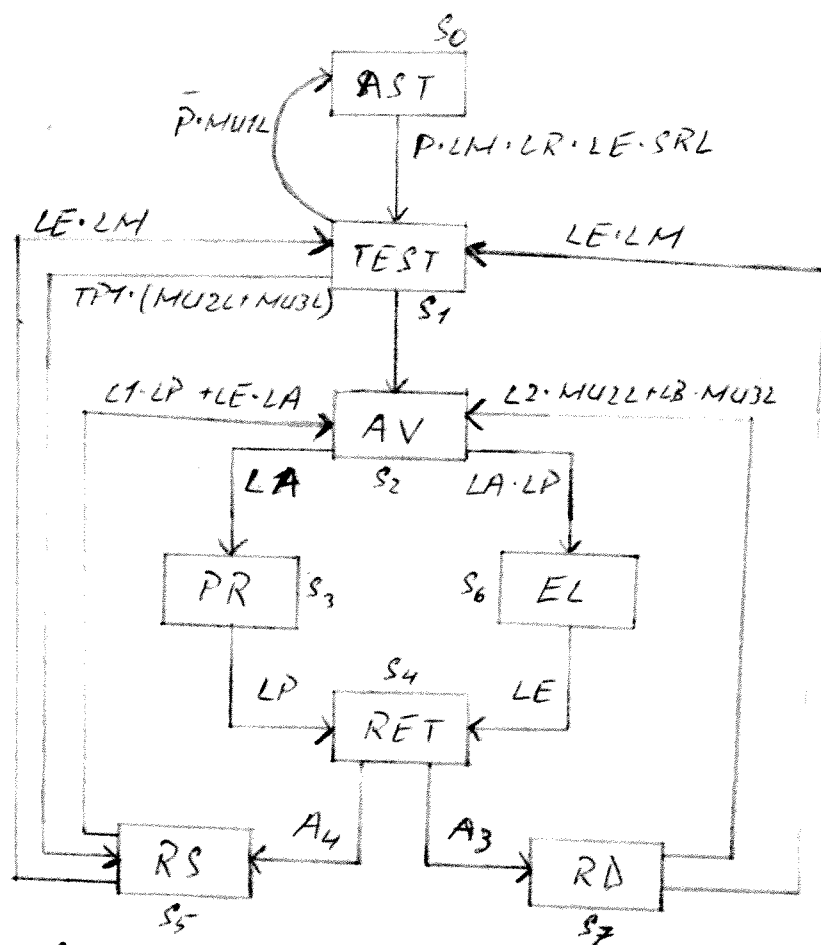 S0
AST
P̄·MU1L
P·LM·LR·LE·SRL
LE·LM
LE·LM
TEST
TP1·(MU2L+MU3L)
S1
L1·LP+LE·LA
L2·MU2L+LB·MU3L
AV
LA
S2
LA·LP
PR
S3
S6
EL
S4
LP
LE
RET
A4
A3
RS
RD
S5
S7